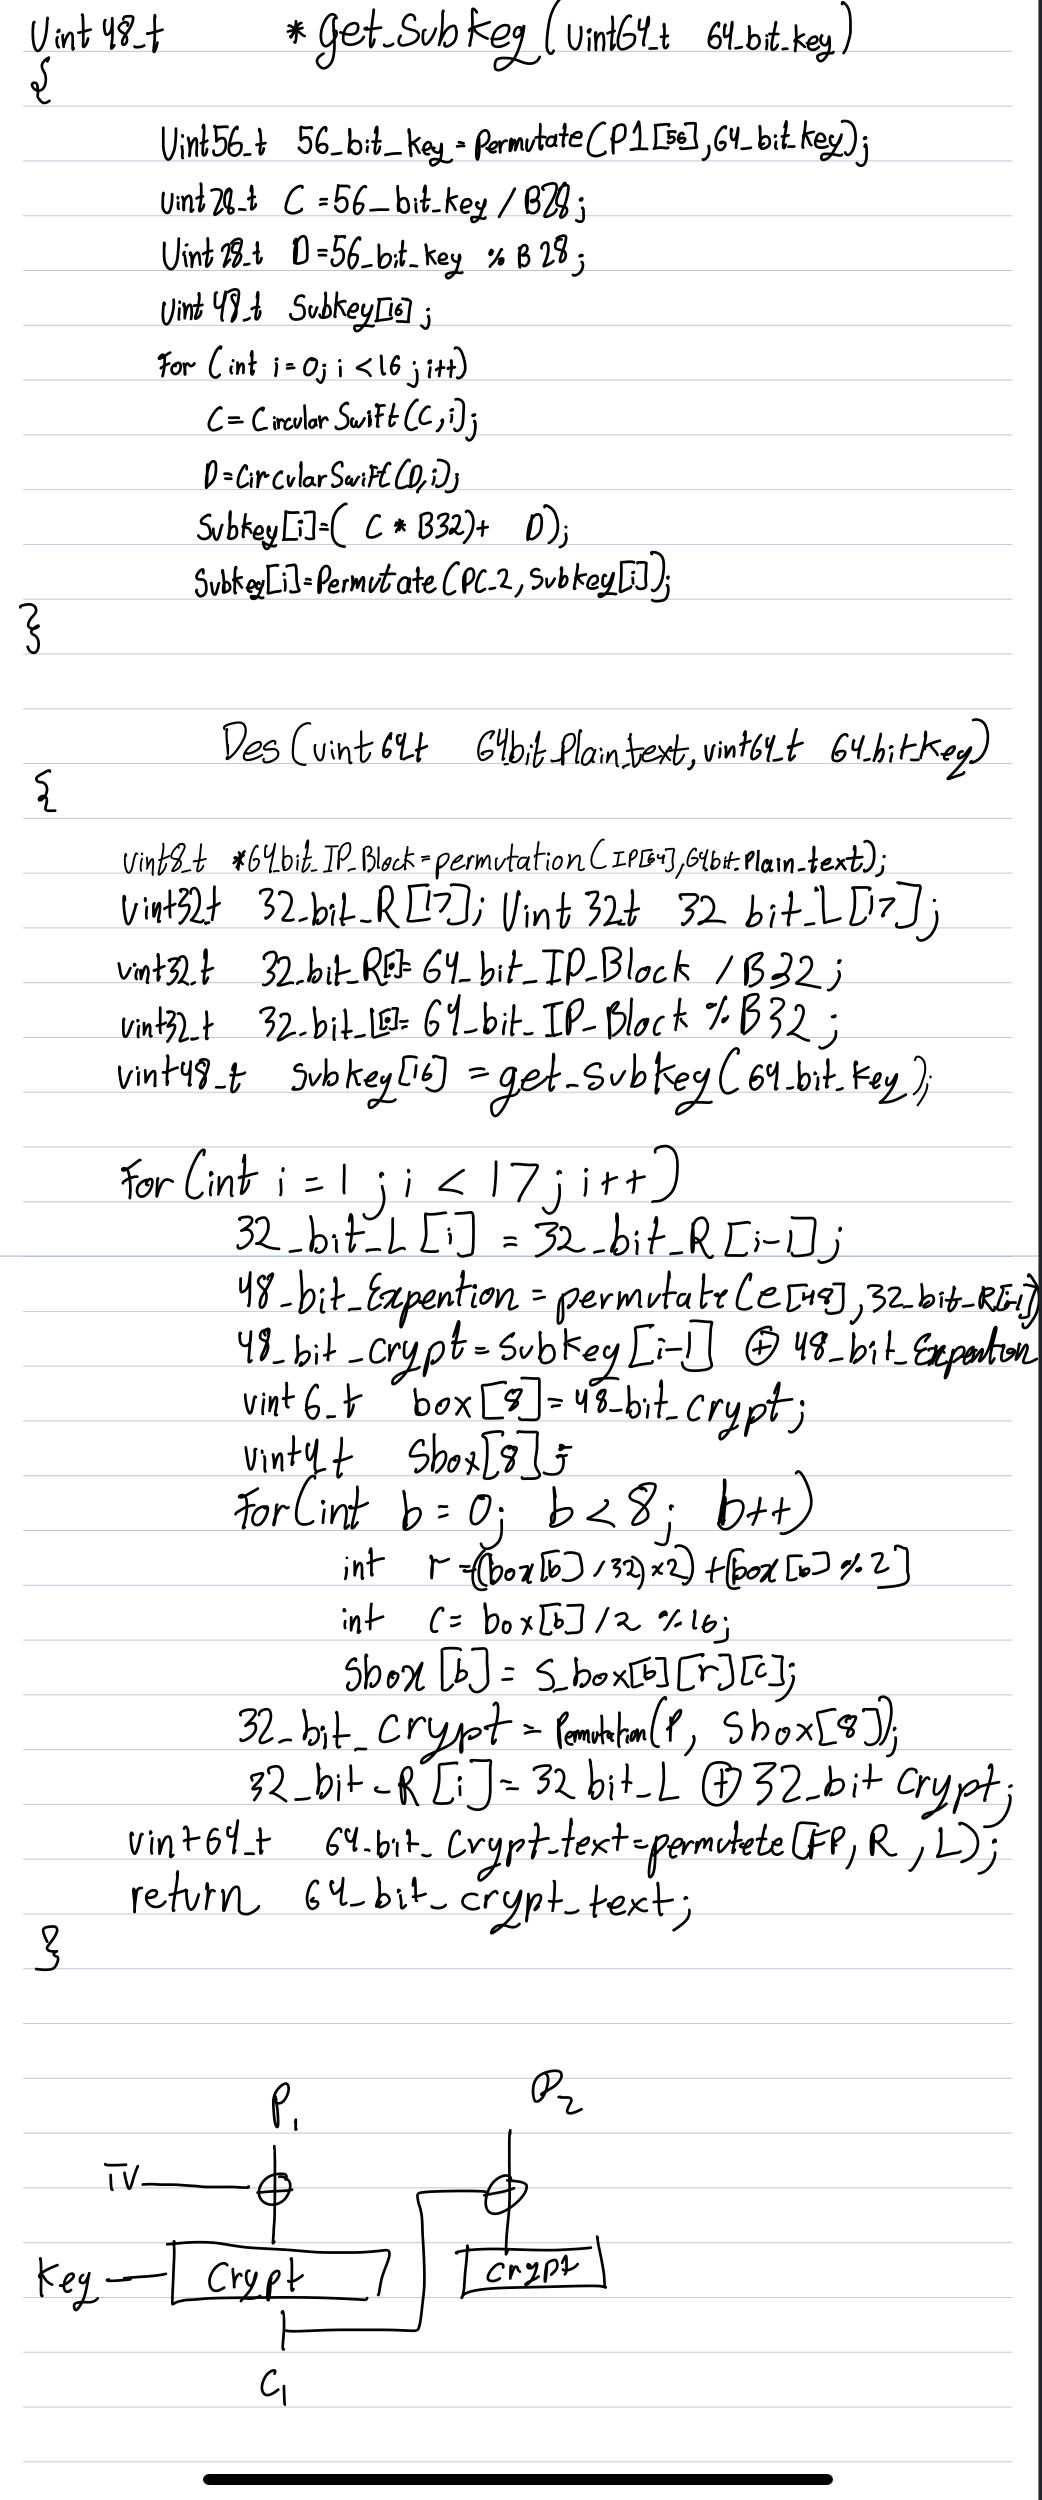 Uint 48_t *get_Subkey(Uint64_t 64_bit_key)
{
Uint56_t 56_bit_key=Permutate(P1[56],64_bit_key);
Uint28_t C=56_bit_key / B28;
Uint28_t D=56_bit_key % B28;
Uint 48_t Subkey[16];
For (int i=0; i<16; i++)
C=CircularSwift(C,i);
D=CircularSwift(D,i);
Subkey[i]=( C * B32)+ D);
Subkey[i]=Permutate(PC_2, Subkey[i]);
}
Des(uint64t 64bit_Plain_text,uint64_t 64_bit_Key)
{
uint8_t *64_bit_IP_Block=permutation(IP[64],64bit_Plain_text);
Uint32t 32_bit_R[17]; Uint 32t 32 bit_L[17];
uint32_t 32_bit_R[0]=64_bit_IP_Block / B32;
uint32_t 32_bit_L[0]=64_bit_IP_Block % B32;
uint48_t Subkey[16] = get_Subkey(64_bit_key);
For(int i=1; i < 17; i++)
32_bit_L[i] = 32_bit_R[i-1];
48_bit_Expention=permutate(e[48],32_bit_R[i-1])
48_bit_crypt=Subkey[i-1] ⊕ 48_bit_Expention
uint 6_t box[8]=48_bit_crypt;
uint4t Sbox[8];
For(int b=0; b<8; b++)
int r=((box[b]/32)×2)+(box[b]%2]
int C=box[b]/2 %16;
Sbox[b]=S_box[b][r][c];
32_bit_Crypt=Permutation(P, Sbox[8]);
32_bit_R[i]=32bit_L ⊕ 32_bit Crypt;
uint64_t 64_bit_Crypt_text=permutete(FP, R, L);
return 64_bit_crypt_text;
}
P1 P2
IV
Key Crypt crypt
C1